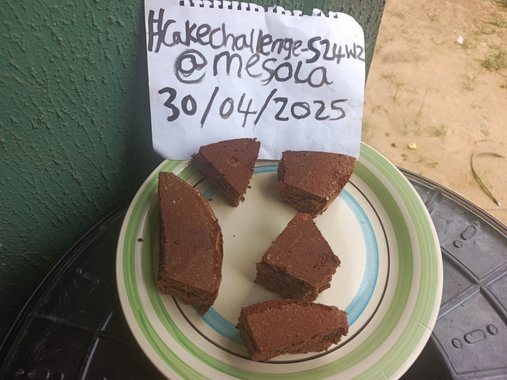 #Cakechallenge-S24W2
@mesola
30/04/2025